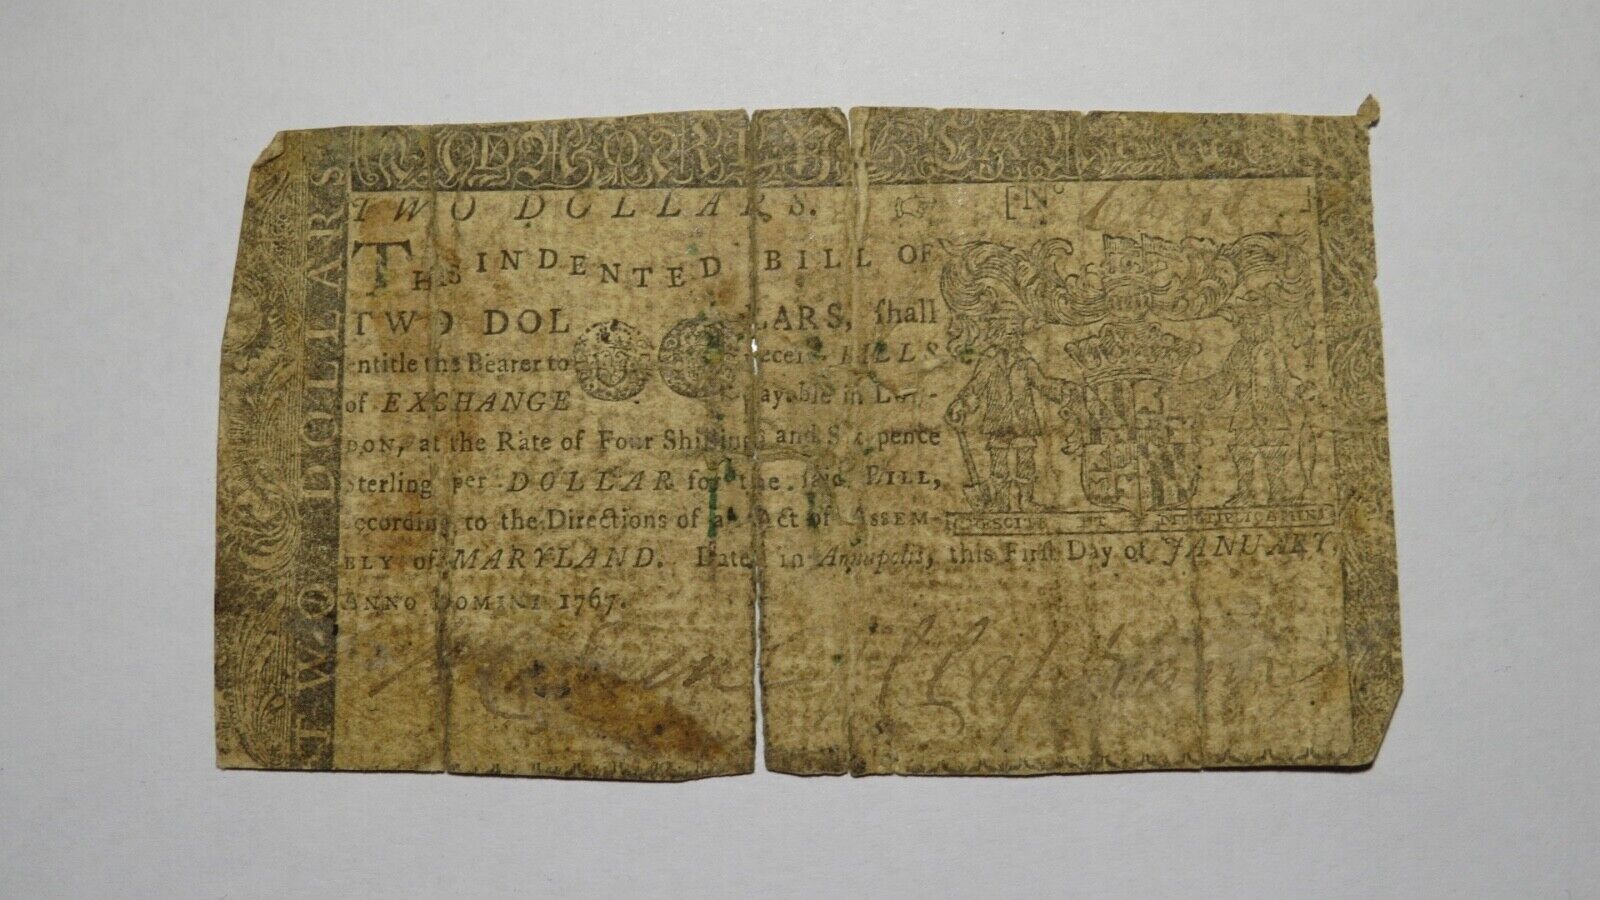 TWO DOLLARS
TWO DOLLARS. [No ]
THIS INDENTED BILL OF
TWO DOL LARS, ſhall
entitle the Bearer to receive BILLS
of EXCHANGE payable in Lon-
DON, at the Rate of Four Shillings and Sixpence
Sterling per DOLLAR for the ſaid BILL,
according to the Directions of an Act of ASSEM-
BLY of MARYLAND. Dated in Annapolis, this Firſt Day of JANUARY,
ANNO DOMINI 1767.
CRESCITE ET MULTIPLICAMINI